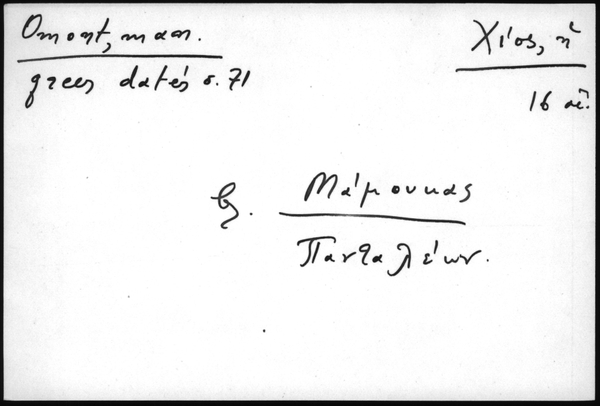 Omont, man.
grecs datés σ. 71
Χίος, ἡ
16 αἰ.
βζ. Μάμουκας
Πανταλέων.